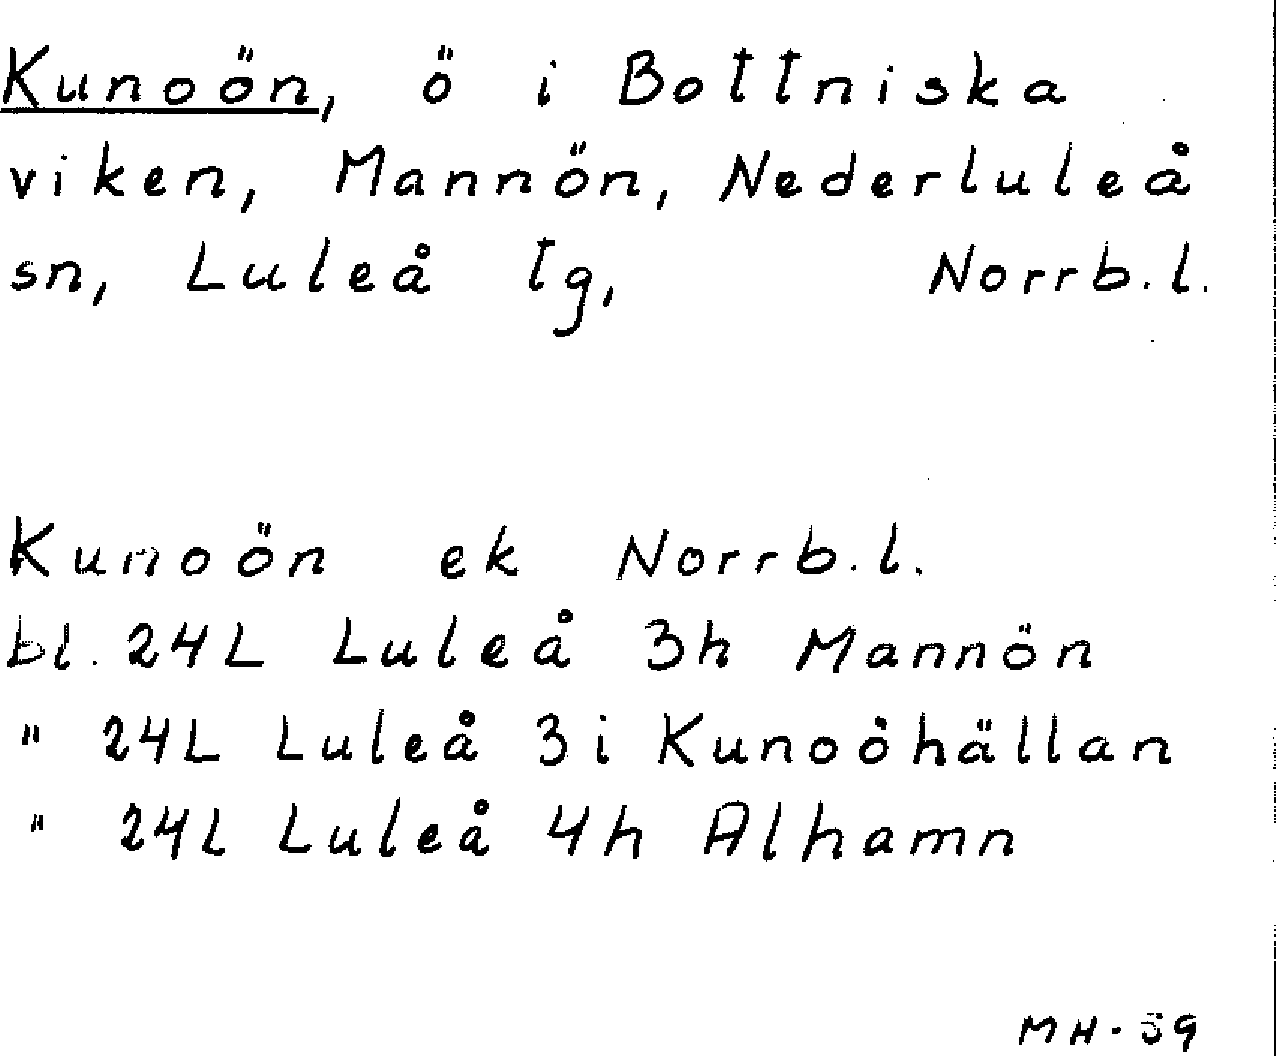 Kunoön, ö i Bottniska
viken, Mannön, Nederluleå
sn, Luleå tg, Norrb.l.
Kunoön ek Norrb.l.
bl. 24L Luleå 3h Mannön
" 24L Luleå 3i Kunoöhällan
" 24L Luleå 4h Alhamn
MH-59